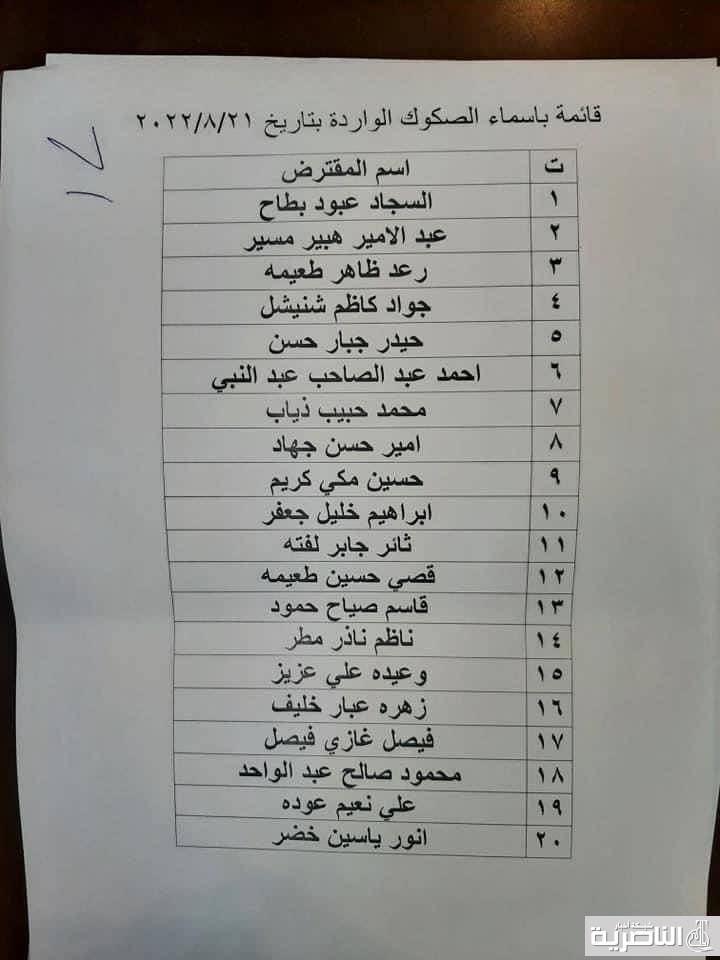 قائمة باسماء الصكوك الواردة بتاريخ ٢٠٢٢/٨/٢١
ت اسم المقترض
١ السجاد عبود بطاح
٢ عبد الامير هبير مسير
٣ رعد ظاهر طعيمه
٤ جواد كاظم شنيشل
٥ حيدر جبار حسن
٦ احمد عبد الصاحب عبد النبي
٧ محمد حبيب ذياب
٨ امير حسن جهاد
٩ حسين مكي كريم
١٠ ابراهيم خليل جعفر
١١ ثائر جابر لفته
١٢ قصي حسين طعيمه
١٣ قاسم صياح حمود
١٤ ناظم ناذر مطر
١٥ وعيده علي عزيز
١٦ زهره عبار خليف
١٧ فيصل غازي فيصل
١٨ محمود صالح عبد الواحد
١٩ علي نعيم عوده
٢٠ انور ياسين خضر
الناصرية